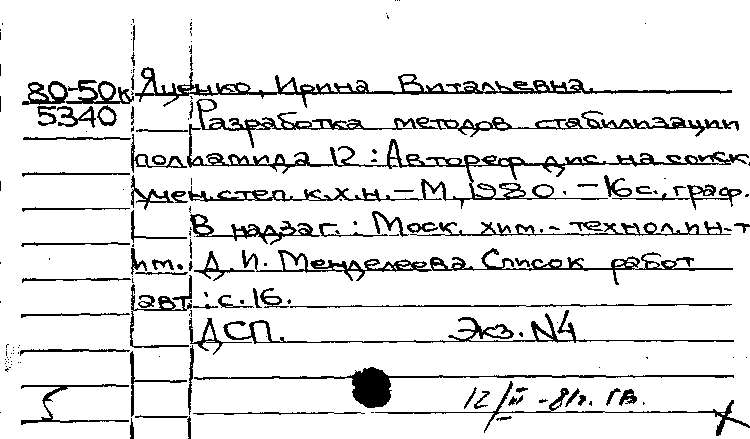 80-50к Яценко, Ирина Витальевна.
5340 Разработка методов стабилизации
полиамида 12 : Автореф. дис. на соиск.
учен. степ. к.х.н. – М., 1980. – 16 с., граф.
В надзаг.: Моск. хим.-технол. ин-т
им. Д. И. Менделеева. Список работ
авт.: с. 16.
ДСП. Экз. N4
5 12/II -81г. ГВ.